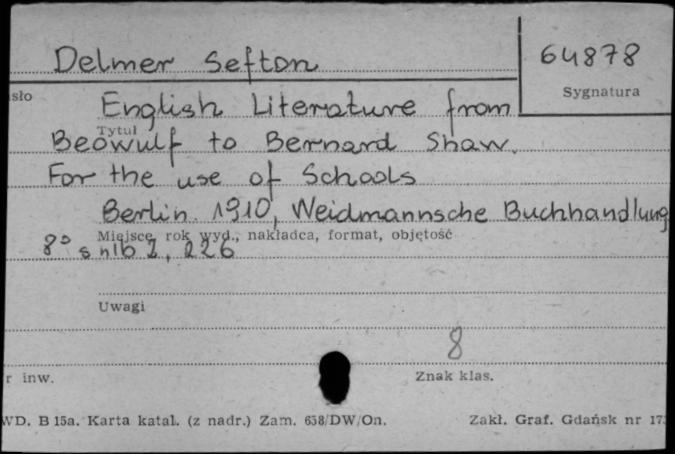 Delmer Sefton
64878
Sygnatura
sło
English Literature from
Tytuł
Beowulf to Bernard Shaw.
For the use of Schools
Berlin 1910, Weidmannsche Buchhandlung
Miejsce, rok wyd., nakładca, format, objętość
8° s nlb 2, 226
Uwagi
8
r inw.
Znak klas.
WD. B 15a. Karta katal. (z nadr.) Zam. 658/DW/On.
Zakł. Graf. Gdańsk nr 173